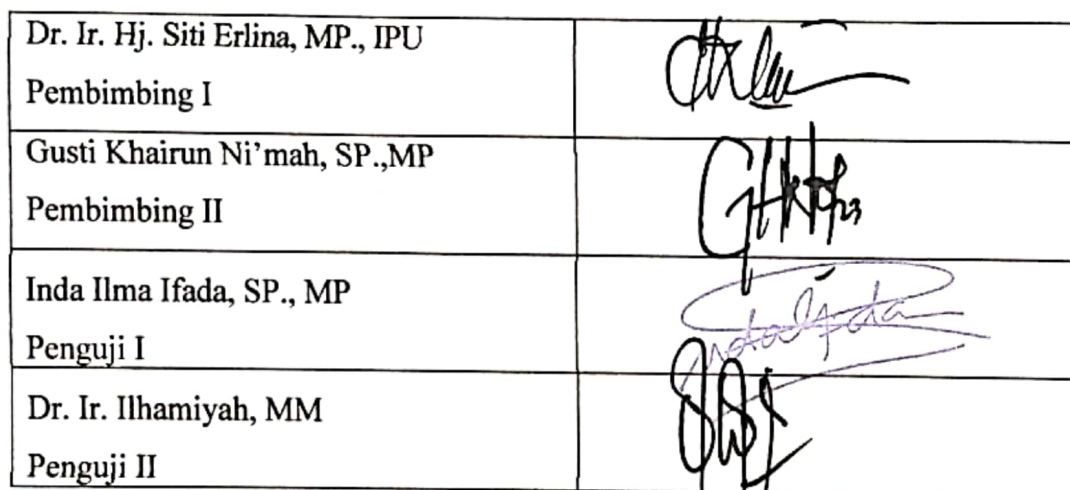 Dr. Ir. Hj. Siti Erlina, MP., IPU
Pembimbing I
Gusti Khairun Ni'mah, SP.,MP
Pembimbing II
Inda Ilma Ifada, SP., MP
Penguji I
Dr. Ir. Ilhamiyah, MM
Penguji II